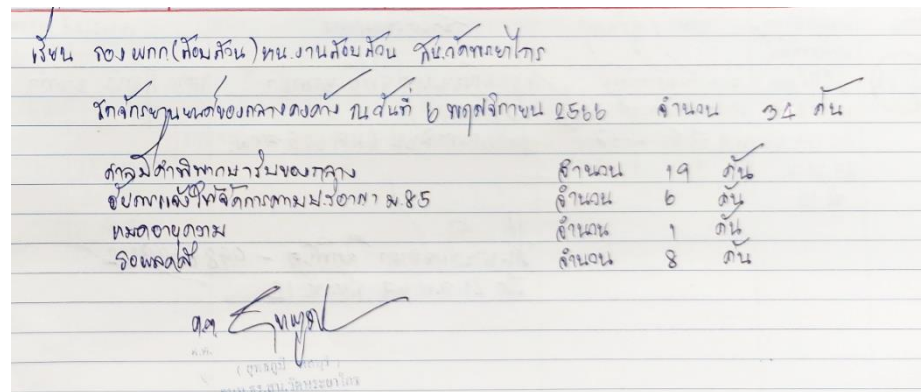 เรียน รอง ผกก.(สอบสวน) หน.งานสอบสวน สน.วัดพระยาไกร
รถจักรยานยนต์ของกลางคงค้าง ณ วันที่ 6 พฤศจิกายน 2566 จำนวน 34 คัน
ศาลมีคำพิพากษาริบของกลาง จำนวน 19 คัน
อัยการแจ้งให้จัดการตาม ป.วิอาญา ม.85 จำนวน 6 คัน
หมดอายุความ จำนวน 1 คัน
รอผลคดี จำนวน 8 คัน